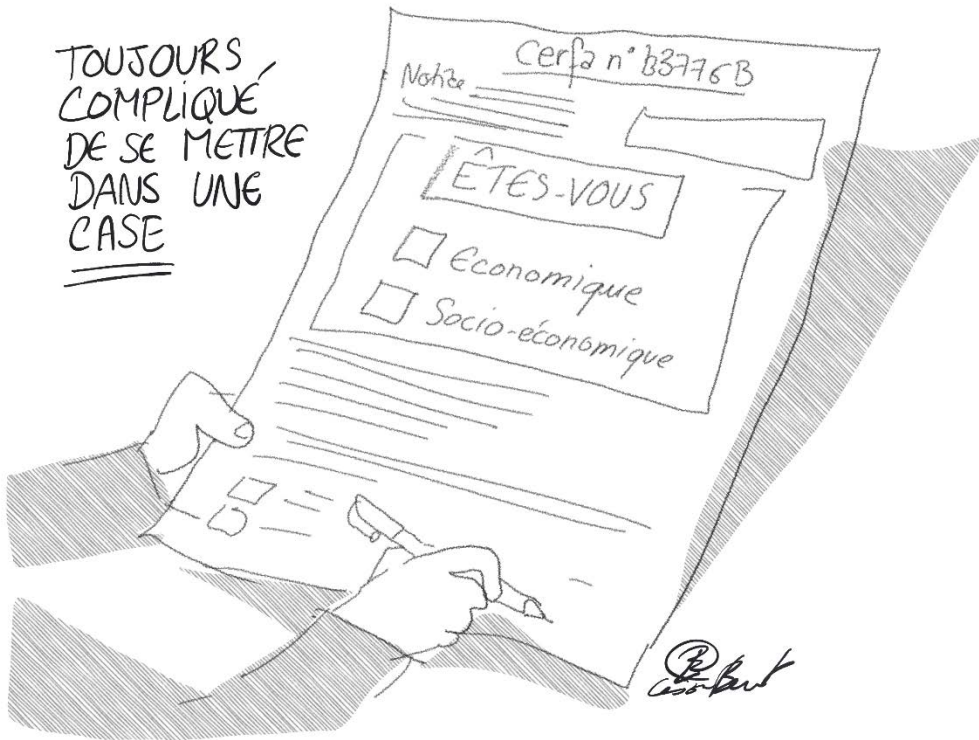 TOUJOURS
COMPLIQUÉ
DE SE METTRE
DANS UNE
CASE
Cerfa n° b3776B
Notice
ÊTES-VOUS
Economique
Socio-économique